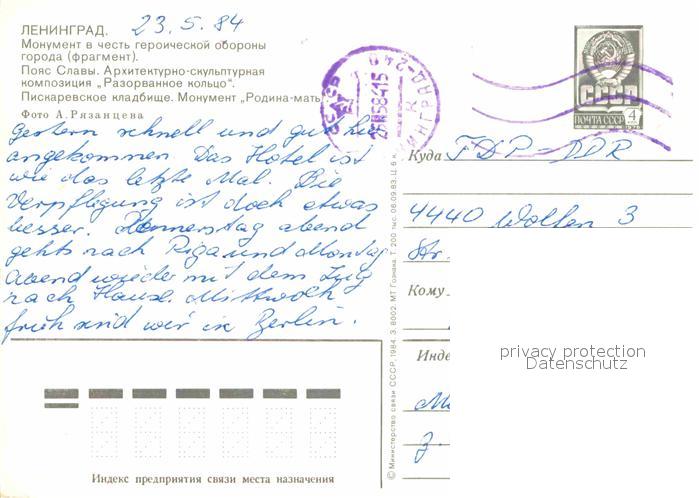 ЛЕНИНГРАД. 23.5.84
Монумент в честь героической обороны
города (фрагмент).
Пояс Славы. Архитектурно-скульптурная
композиция „Разорванное кольцо“.
Пискаревское кладбище. Монумент „Родина-мать
Фото А. Рязанцева
gestern schnell und gut hier
angekommen. Das Hotel ist
wie das letzte Mal. Die
Verpflegung ist doch etwas
besser. Donnerstag abend
gehts nach Riga und Montag
Abend wieder mit dem Zug
nach Hause. Mittwoch
früh sind wir in Berlin.
Индекс предприятия связи места назначения
© Министерство связи СССР, 1984. З. 8002. МТ Гознака. Т. 200 тыс. 06.09.83. Ц. 6 к.
СССР
ПОЧТА СССР 4
Куда ГДР-DDR
4440 Wolfen 3
Str.
Кому
Инде
privacy protection
Datenschutz